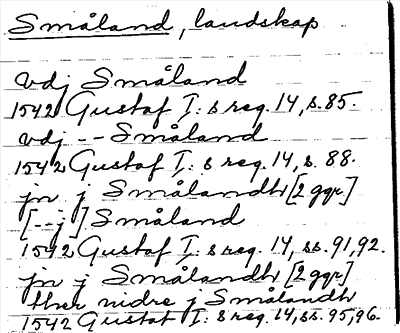 Småland, landskap
vdj Småland
1542 Gustaf I:s reg. 14, s. 85.
vdj -- Småland
1542 Gustaf I:s reg. 14, s. 88.
jn j Smålandh [2 ggr.]
[--j] Småland
1542 Gustaf I:s reg. 14, ss. 91, 92.
jn j Smålandh [2 ggr.]
ther nidre j Smålandh
1542 Gustaf I:s reg. 14, ss. 95, 96.